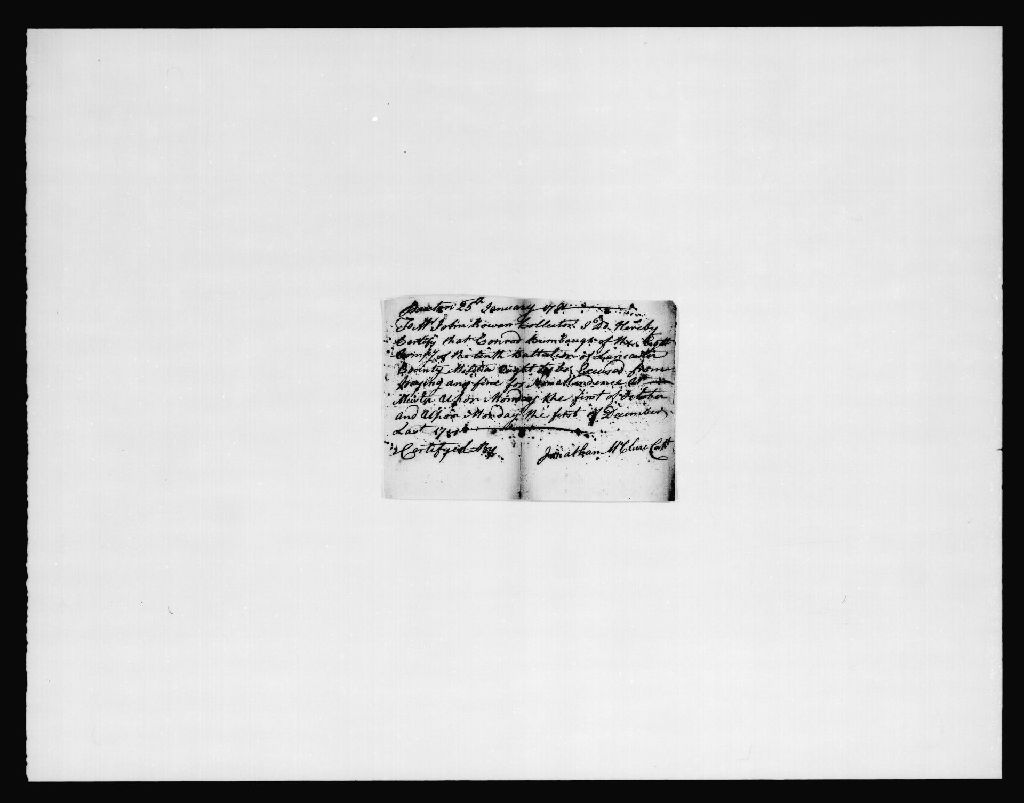 Paxton 25th January 1781
To Mr John Rowan Collector I Do Hereby
Certify that Conrad Bumbaugh of the Eight
Comp'y of the tenth Battalion of Lancaster
County Militia ought to be Excused from
Paying any fine for Nonattendence att
Muster Upon Monday the first of October
and Upon Monday the first of December
Last
Certifyed by
Jonathan McClure Capt